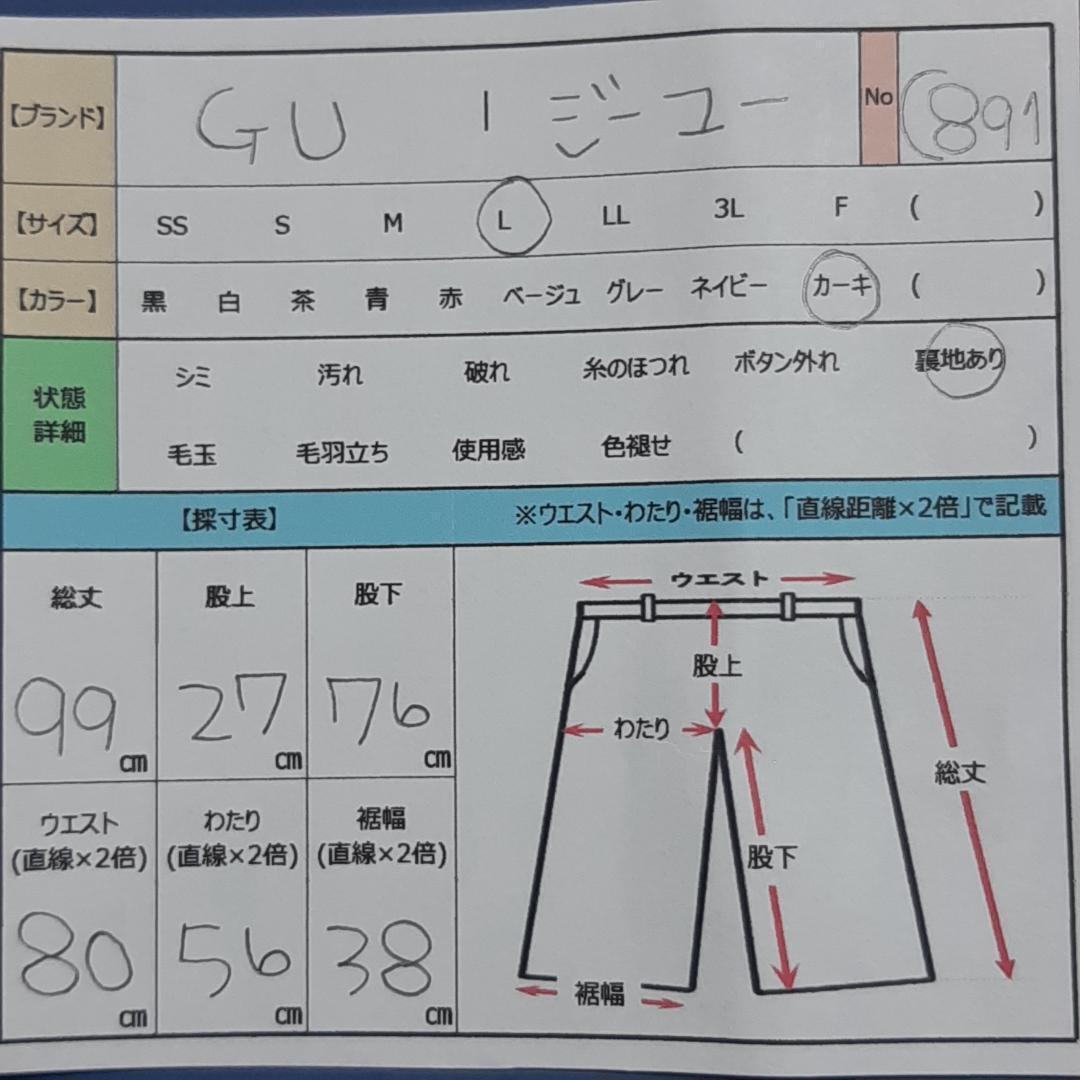 【ブランド】 GU | ジーユー No (891
【サイズ】 SS S M L LL 3L F ( )
【カラー】 黒 白 茶 青 赤 ベージュ グレー ネイビー カーキ ( )
状態
詳細
シミ 汚れ 破れ 糸のほつれ ボタン外れ 裏地あり
毛玉 毛羽立ち 使用感 色褪せ ( )
【採寸表】 ※ウエスト・わたり・裾幅は、「直線距離×2倍」で記載
総丈 股上 股下
99cm 27cm 76cm
ウエスト わたり 裾幅
(直線×2倍) (直線×2倍) (直線×2倍)
80cm 56cm 38cm
ウエスト
股上
わたり
総丈
股下
裾幅